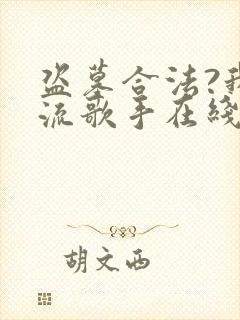 盗墓合法?我
流歌手在线
胡文西